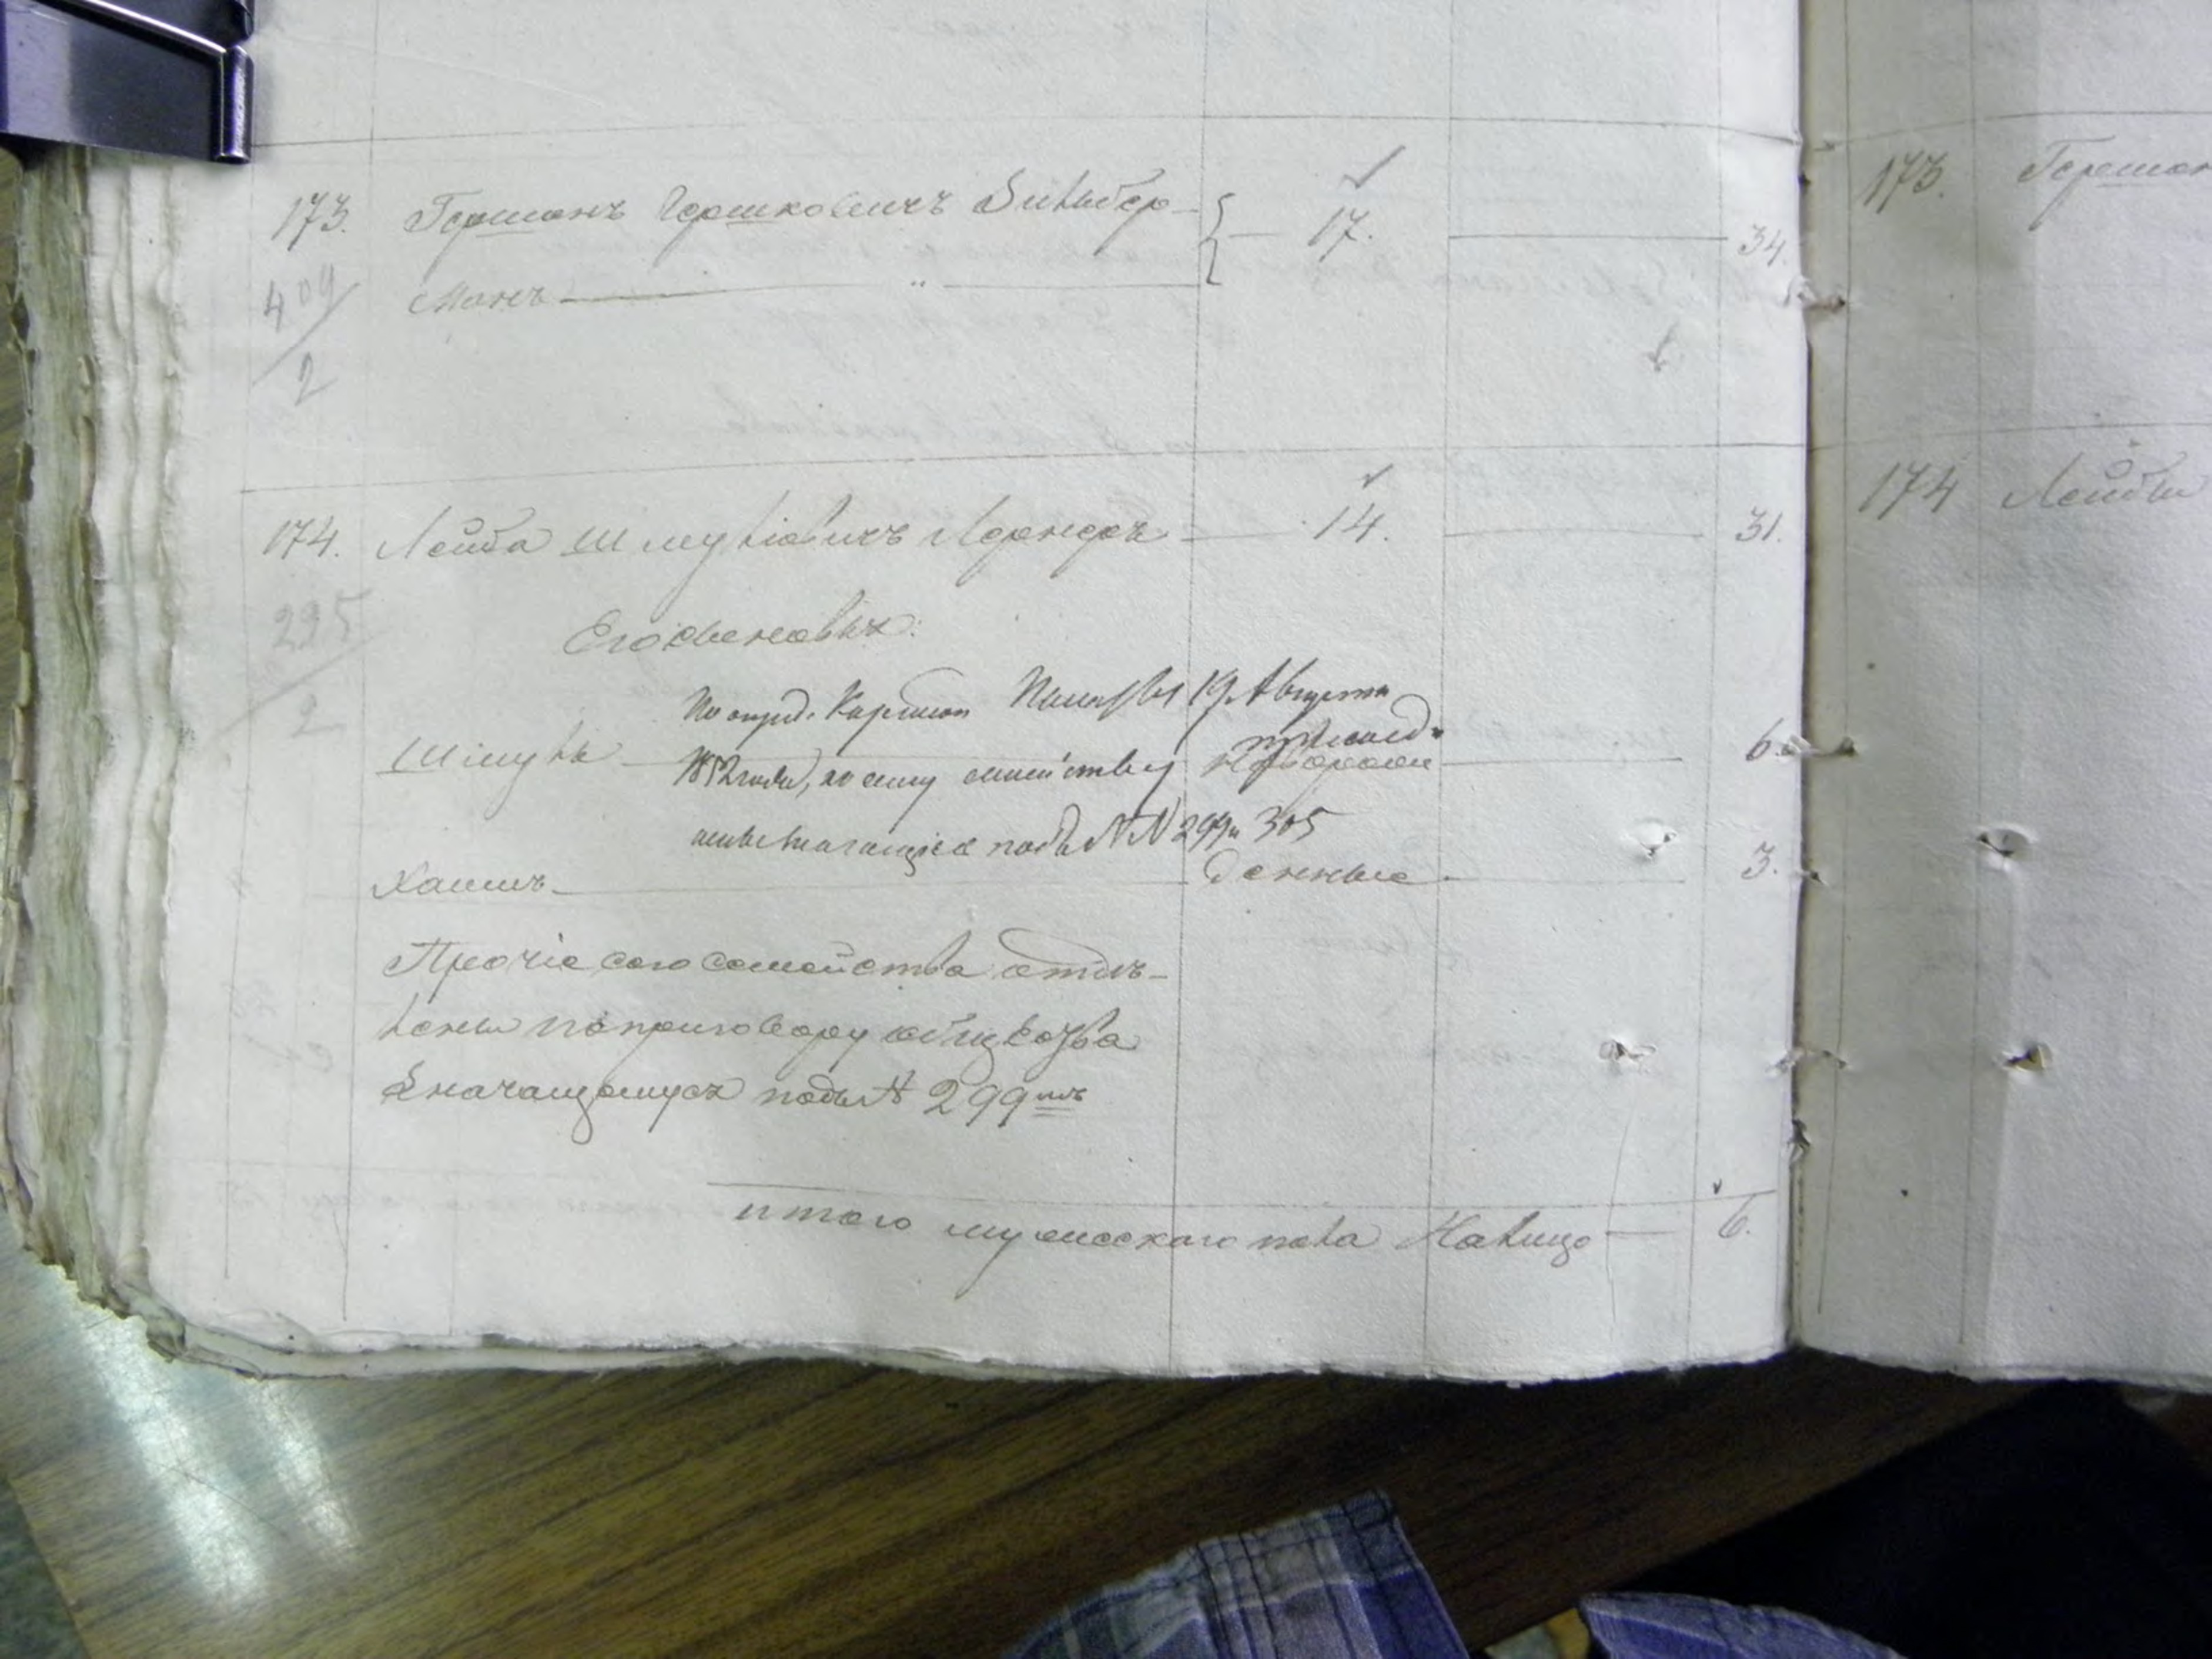 173. Гершонъ Гершковичъ Зильбер- 17. 34.
409/2 Манъ — „ —
174. Лейба Шмулiовичъ Лернеръ 14. 31.
295/2 Его сыновья:
По опред. Казенной Палаты 19 Августа
1852 года, къ сему семейству
Шмуль новорож- 6.
подъ NN 299 и 305
Хаимъ денные 3.
Прочiе сего семейства отдѣ-
лены по приговору общества
значащемуся подъ N 299мъ
итого мужескаго пола налицо 6.
173. Гершон
174 Лейбы